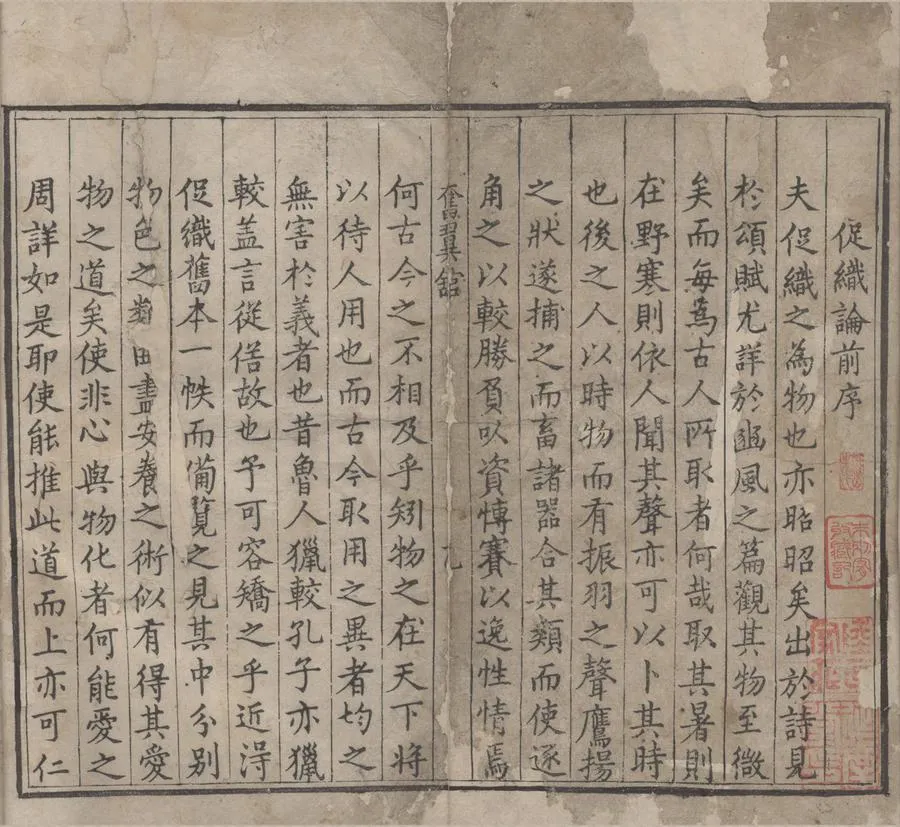 促織論前序
夫促織之為物也亦昭昭矣出於詩見
於頌賦尤詳於豳風之篇觀其物至微
矣而每為古人所取者何哉取其暑則
在野寒則依人聞其聲亦可以卜其時
也後之人以時物而有振羽之聲鷹揚
之狀遂捕之而畜諸器合其類而使逐
角之以較勝負以資博賽以逸性情焉
奮翼館
九
何古今之不相及乎矧物之在天下將
以待人用也而古今取用之異者均之
無害於義者也昔魯人獵較孔子亦獵
較盖言從俗故也予可容矯之乎近淂
促織舊本一帙而葡覽之見其中分别
物色之類田盡安養之術似有得其愛
物之道矣使非心與物化者何能愛之
周詳如是耶使能推此道而上亦可仁